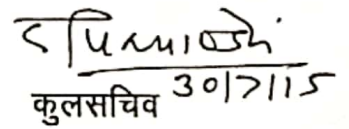 30/7/15
कुलसचिव